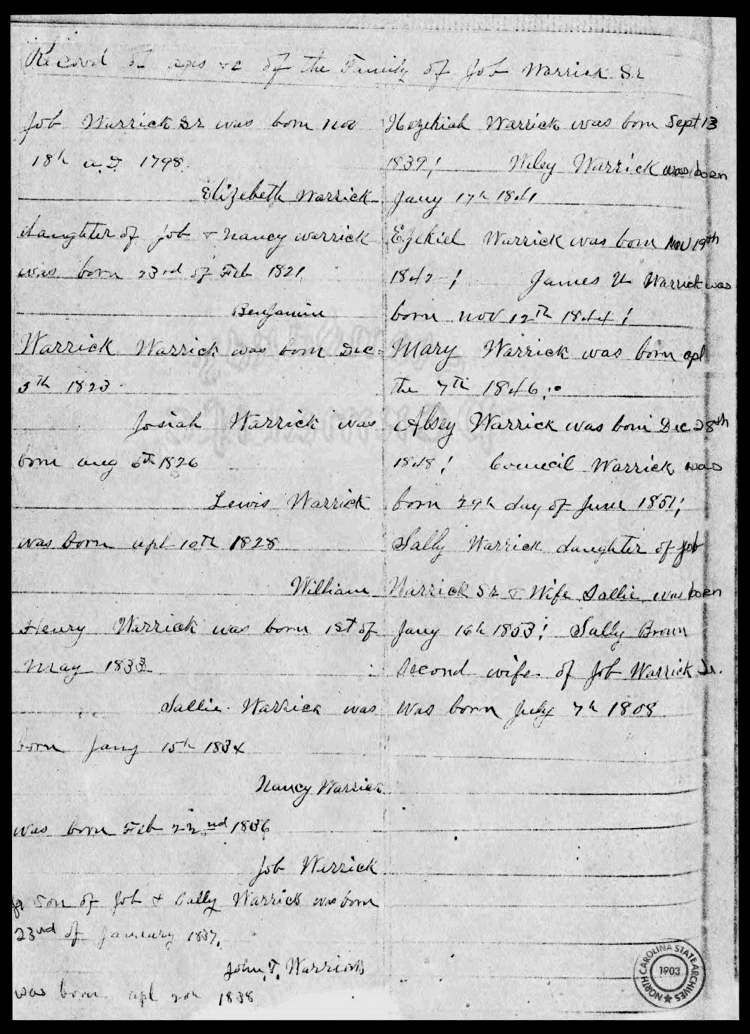 Record of ages &c of the Family of Job Warrick Sr
Job Warrick Sr was born Nov
18th A.D. 1798.
Elizebeth Warrick
daughter of Job & Nancy Warrick
was born 23rd of Feb 1821
Benjamin
Warrick Warrick was born Dec
5th 1823.
Josiah Warrick was
born Aug 6th 1826
Lewis Warrick
was born Apl 10th 1828
William
Henry Warrick was born 1st of
May 1833
Sallie Warrick was
born Jany 15th 1834
Nancy Warrick
was born Feb 22nd 1836
Job Warrick
Jr Son of Job & Sally Warrick was born
23rd of January 1837.
John T. Warrick
was born Apl 1838
Hezekiah Warrick was born Sept 13
1839; Wiley Warrick was born
Jany 17th 1841
Ezekiel Warrick was born Nov 19th
1842; James Warrick was
born Nov 12th 1844;
Mary Warrick was born Apl
the 7th 1846;
Absey Warrick was born Dec 28th
1848; Council Warrick was
born 29th day of June 1851;
Sally Warrick daughter of Job
Warrick Sr & Wife Sallie was born
Jany 16th 1853; Sally Brown
Second wife of Job Warrick Sr.
was born July 7th 1808
NORTH CAROLINA STATE ARCHIVES
1903